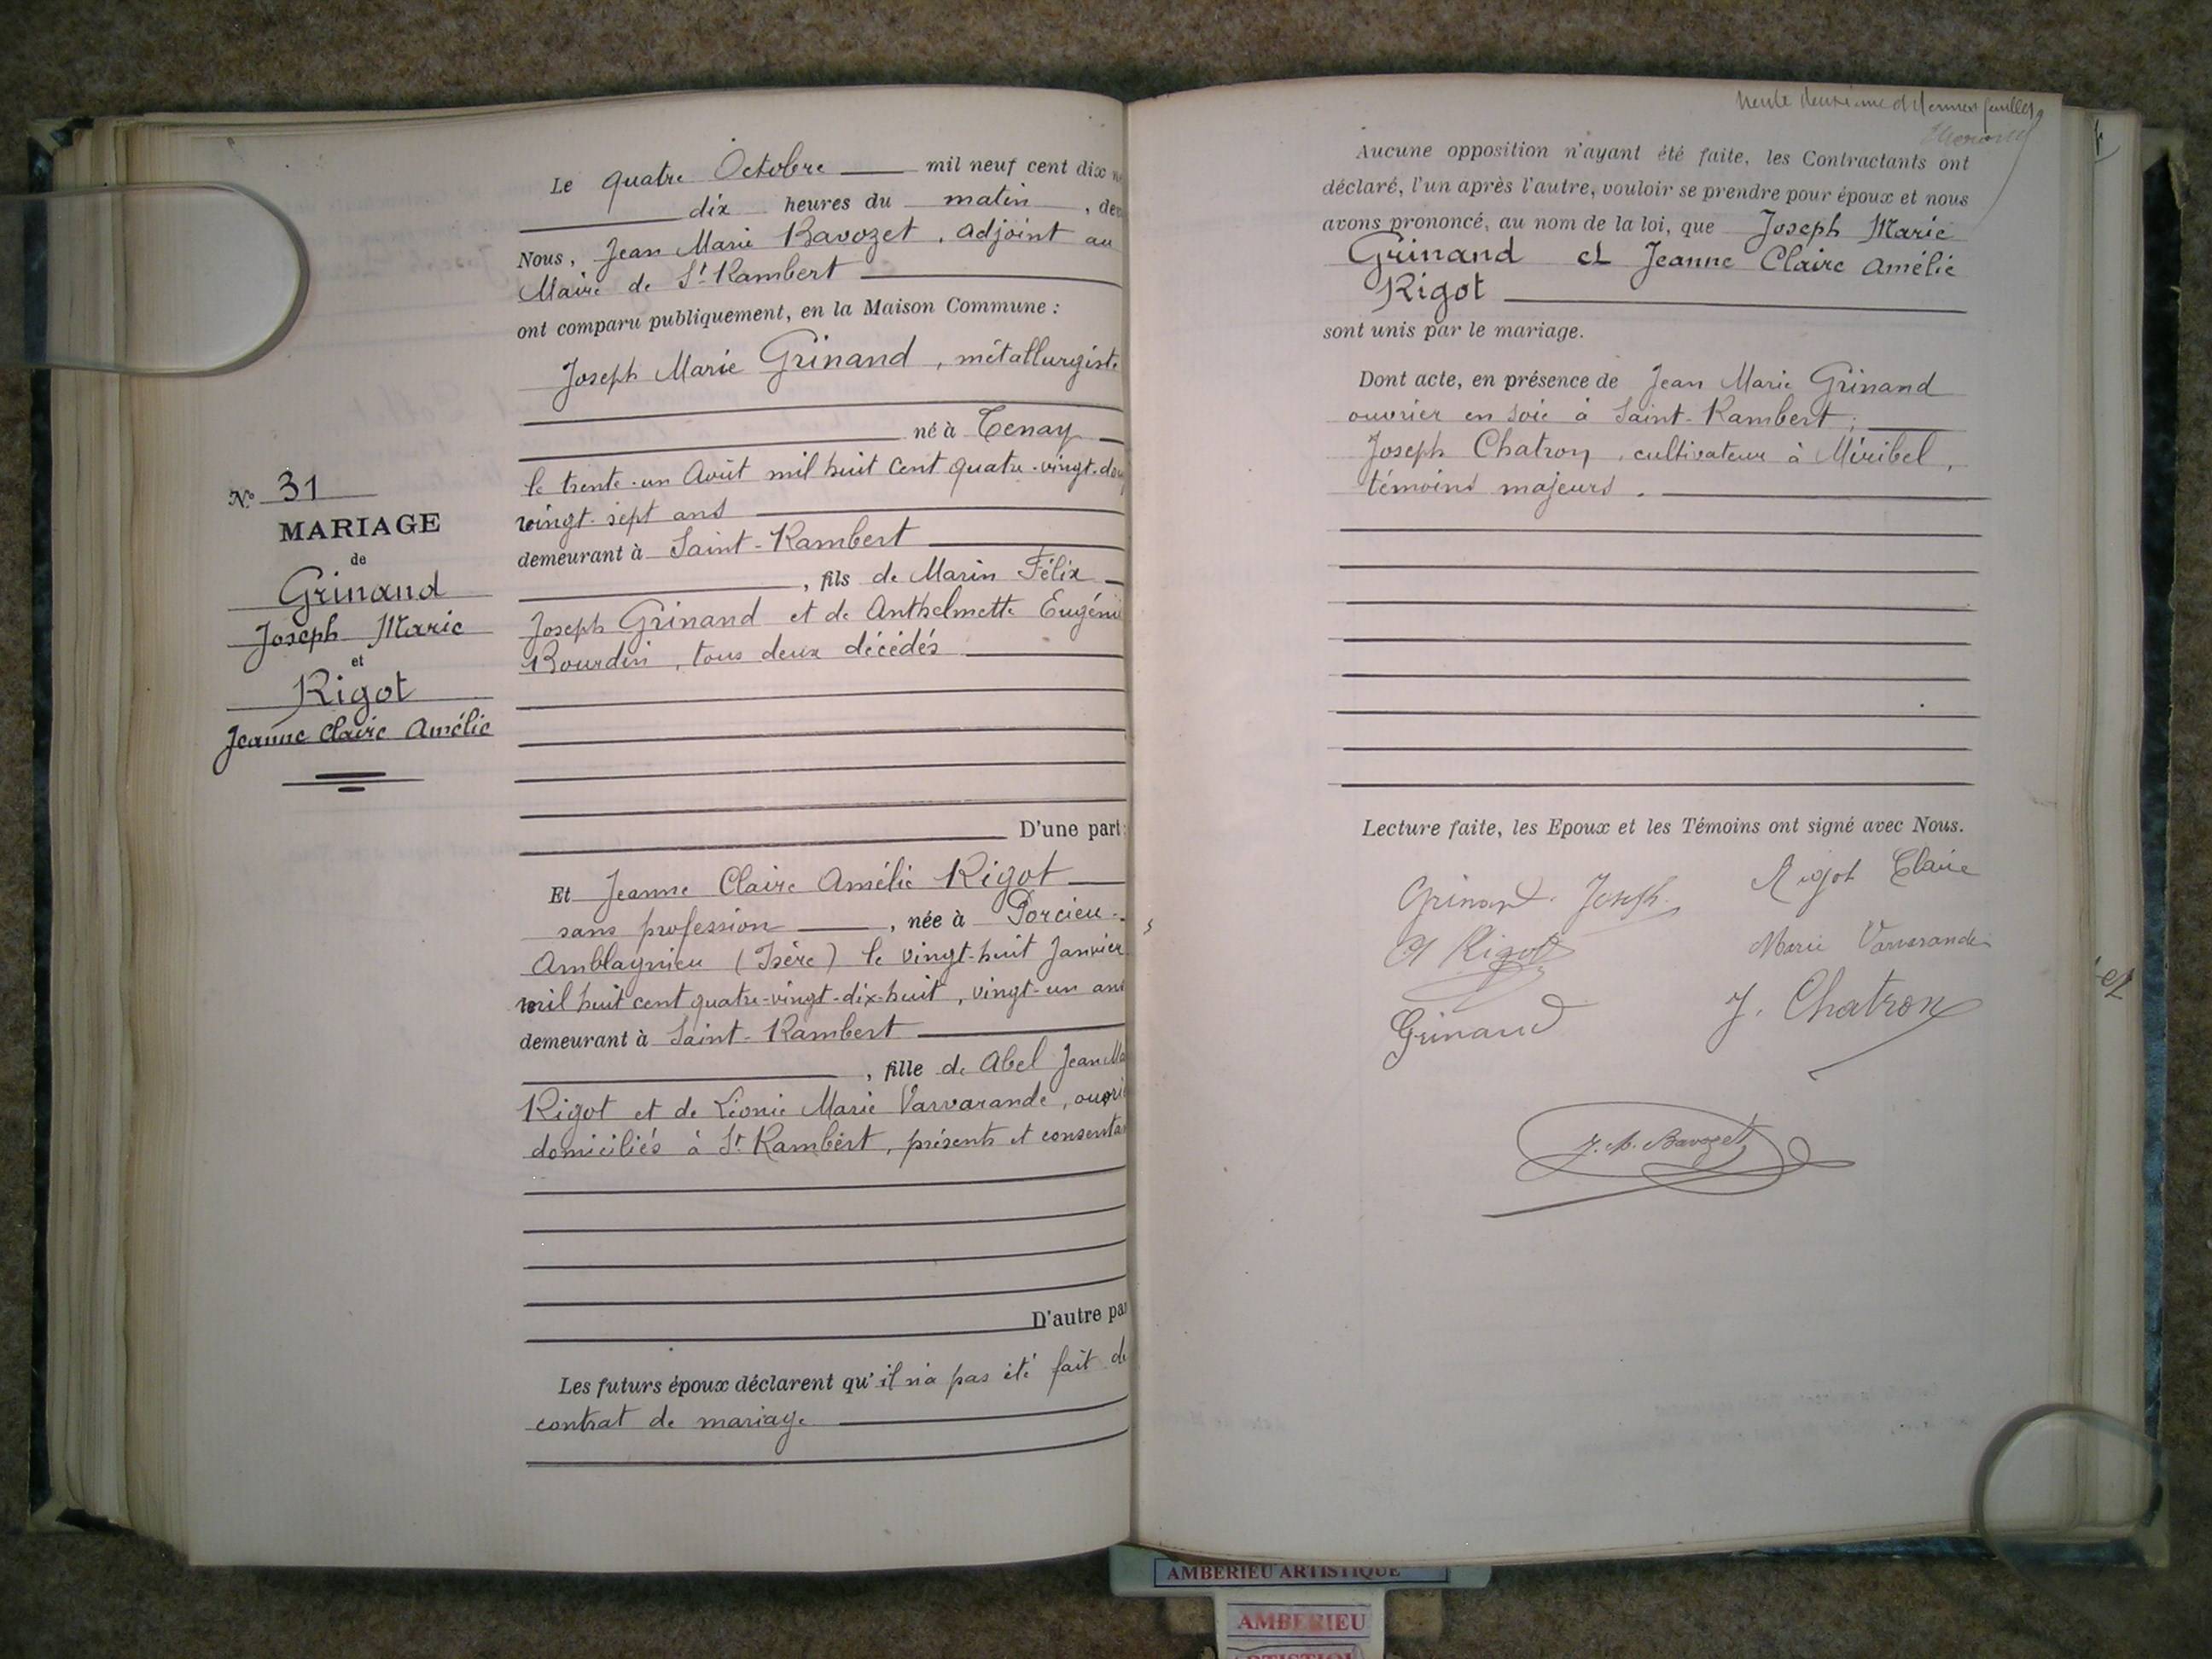 N° 31
MARIAGE
de
Grinand
Joseph Marie
et
Rigot
Jeanne Claire Amélie
Le quatre Octobre mil neuf cent dix
dix heures du matin
Nous, Jean Marie Bavozet, adjoint au
Maire de St Rambert
ont comparu publiquement, en la Maison Commune :
Joseph Marie Grinand, métallurgiste
né à Tenay
le trente-un Août mil huit cent quatre-vingt-
vingt-sept ans
demeurant à Saint-Rambert
, fils de Marin Félix
Joseph Grinand et de Anthelmette Eugénie
Bourdin, tous deux décédés
D'une part :
Et Jeanne Claire Amélie Rigot
sans profession, née à Porcieu-
Amblagnieu (Isère) le vingt-huit Janvier
mil huit cent quatre-vingt-dix-huit, vingt-un ans
demeurant à Saint-Rambert
, fille de Abel Jean
Rigot et de Léonie Marie Varvarande,
domiciliés à St Rambert, présents et
D'autre
Les futurs époux déclarent qu'il n'a pas été fait de
contrat de mariage
Aucune opposition n'ayant été faite, les Contractants ont
déclaré, l'un après l'autre, vouloir se prendre pour époux et nous
avons prononcé, au nom de la loi, que Joseph Marie
Grinand et Jeanne Claire Amélie
Rigot
sont unis par le mariage.
Dont acte, en présence de Jean Marie Grinand
ouvrier en soie à Saint-Rambert ;
Joseph Chatron, cultivateur à Miribel,
témoins majeurs.
Lecture faite, les Epoux et les Témoins ont signé avec Nous.
Grinand Joseph
Rigot Claire
Rigot
Marie Varvarande
Grinand
J. Chatron
J. M. Bavozet
AMBERIEU ARTISTIQUE
AMBERIEU